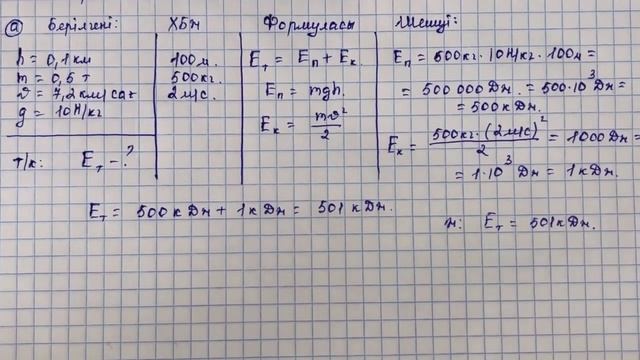 а) Берілгені: ХБЖ Формуласы Шешуі:
h = 0,1 км 100 м.
m = 0,5 т 500 кг.
v = 7,2 км/сағ 2 м/с.
g = 10 Н/кг
Т/к: Eт - ?
Eт = Eп + Eк.
Eп = mgh.
Eк = mv²/2
Eп = 500 кг · 10 Н/кг · 100 м =
= 500 000 Дж. = 500·10³ Дж =
= 500 кДж.
Eк = 500 кг · (2 м/с)²/2 = 1000 Дж =
= 1·10³ Дж = 1 кДж.
Eт = 500 кДж + 1 кДж = 501 кДж.
Ж: Eт = 501 кДж.